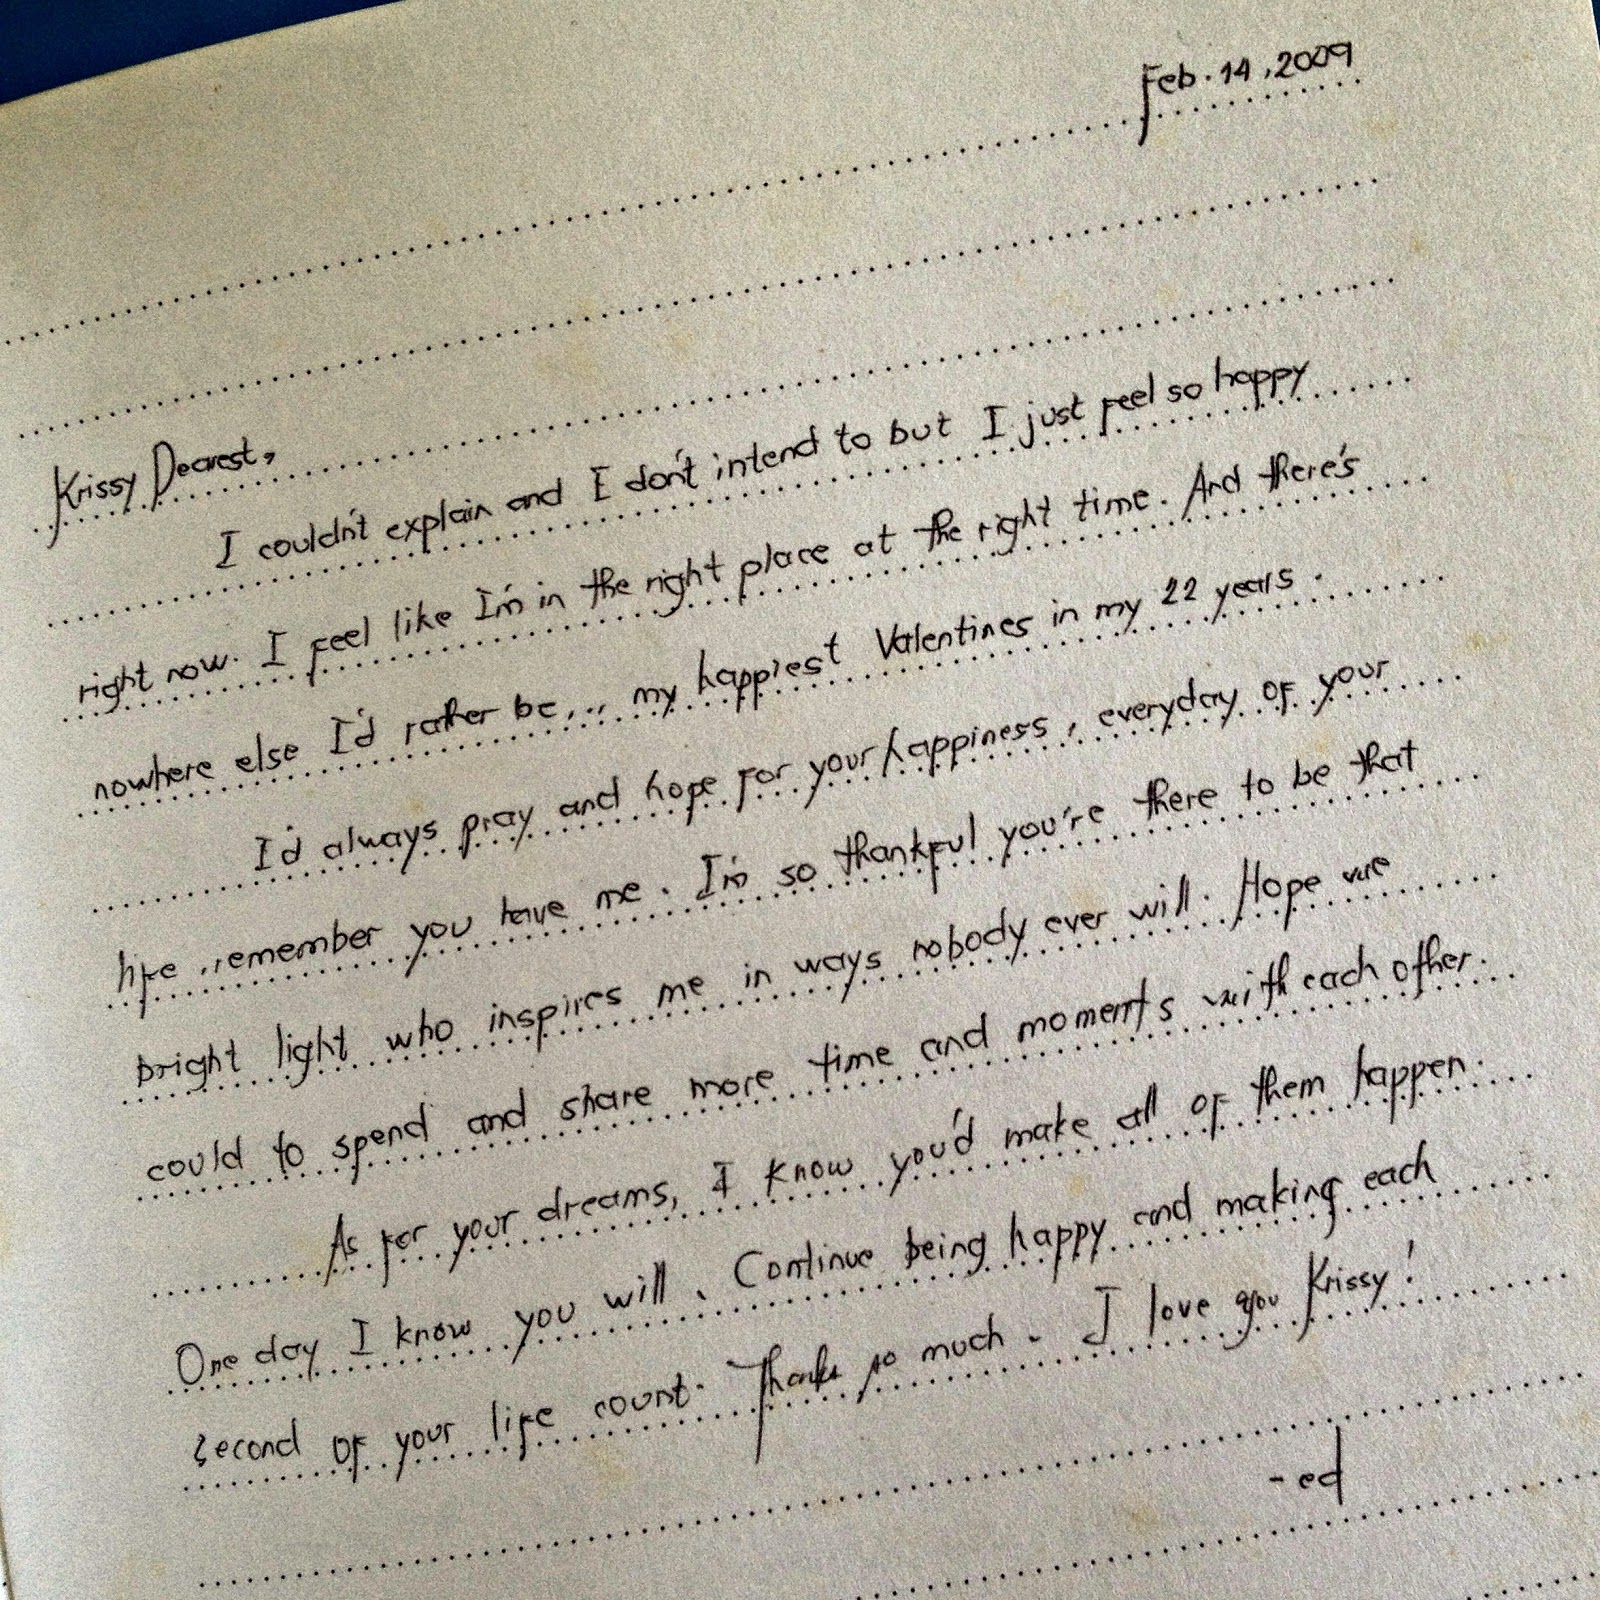 Feb. 14, 2009
Krissy Dearest,
I couldn't explain and I don't intend to but I just feel so happy
right now. I feel like I'm in the right place at the right time. And there's
nowhere else I'd rather be... my happiest Valentines in my 22 years.
I'd always pray and hope for your happiness, everyday of your
life, remember you have me. I'm so thankful you're there to be that
bright light who inspires me in ways nobody ever will. Hope we
could to spend and share more time and moments with each other.
As for your dreams, I know you'd make all of them happen.
One day I know you will. Continue being happy and making each
second of your life count. Thanks so much. I love you Krissy!
-ed